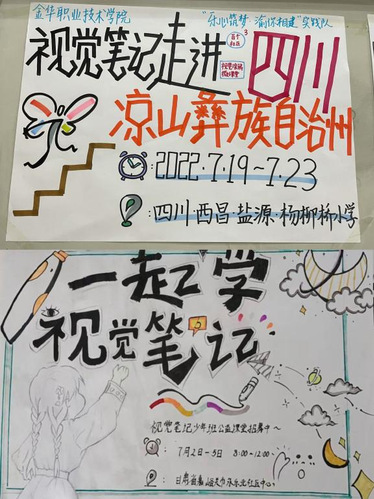 金华职业技术学院
"乐心筑梦 渝你相建"实践队
视觉笔记走进四川
凉山彝族自治州
:2022·7.19~7.23
:四川·西昌·盐源·杨柳桥小学
一起学
视觉笔记
视觉笔记少年班公益课堂招募中~
: 7月2日-5日 8:00-12:00